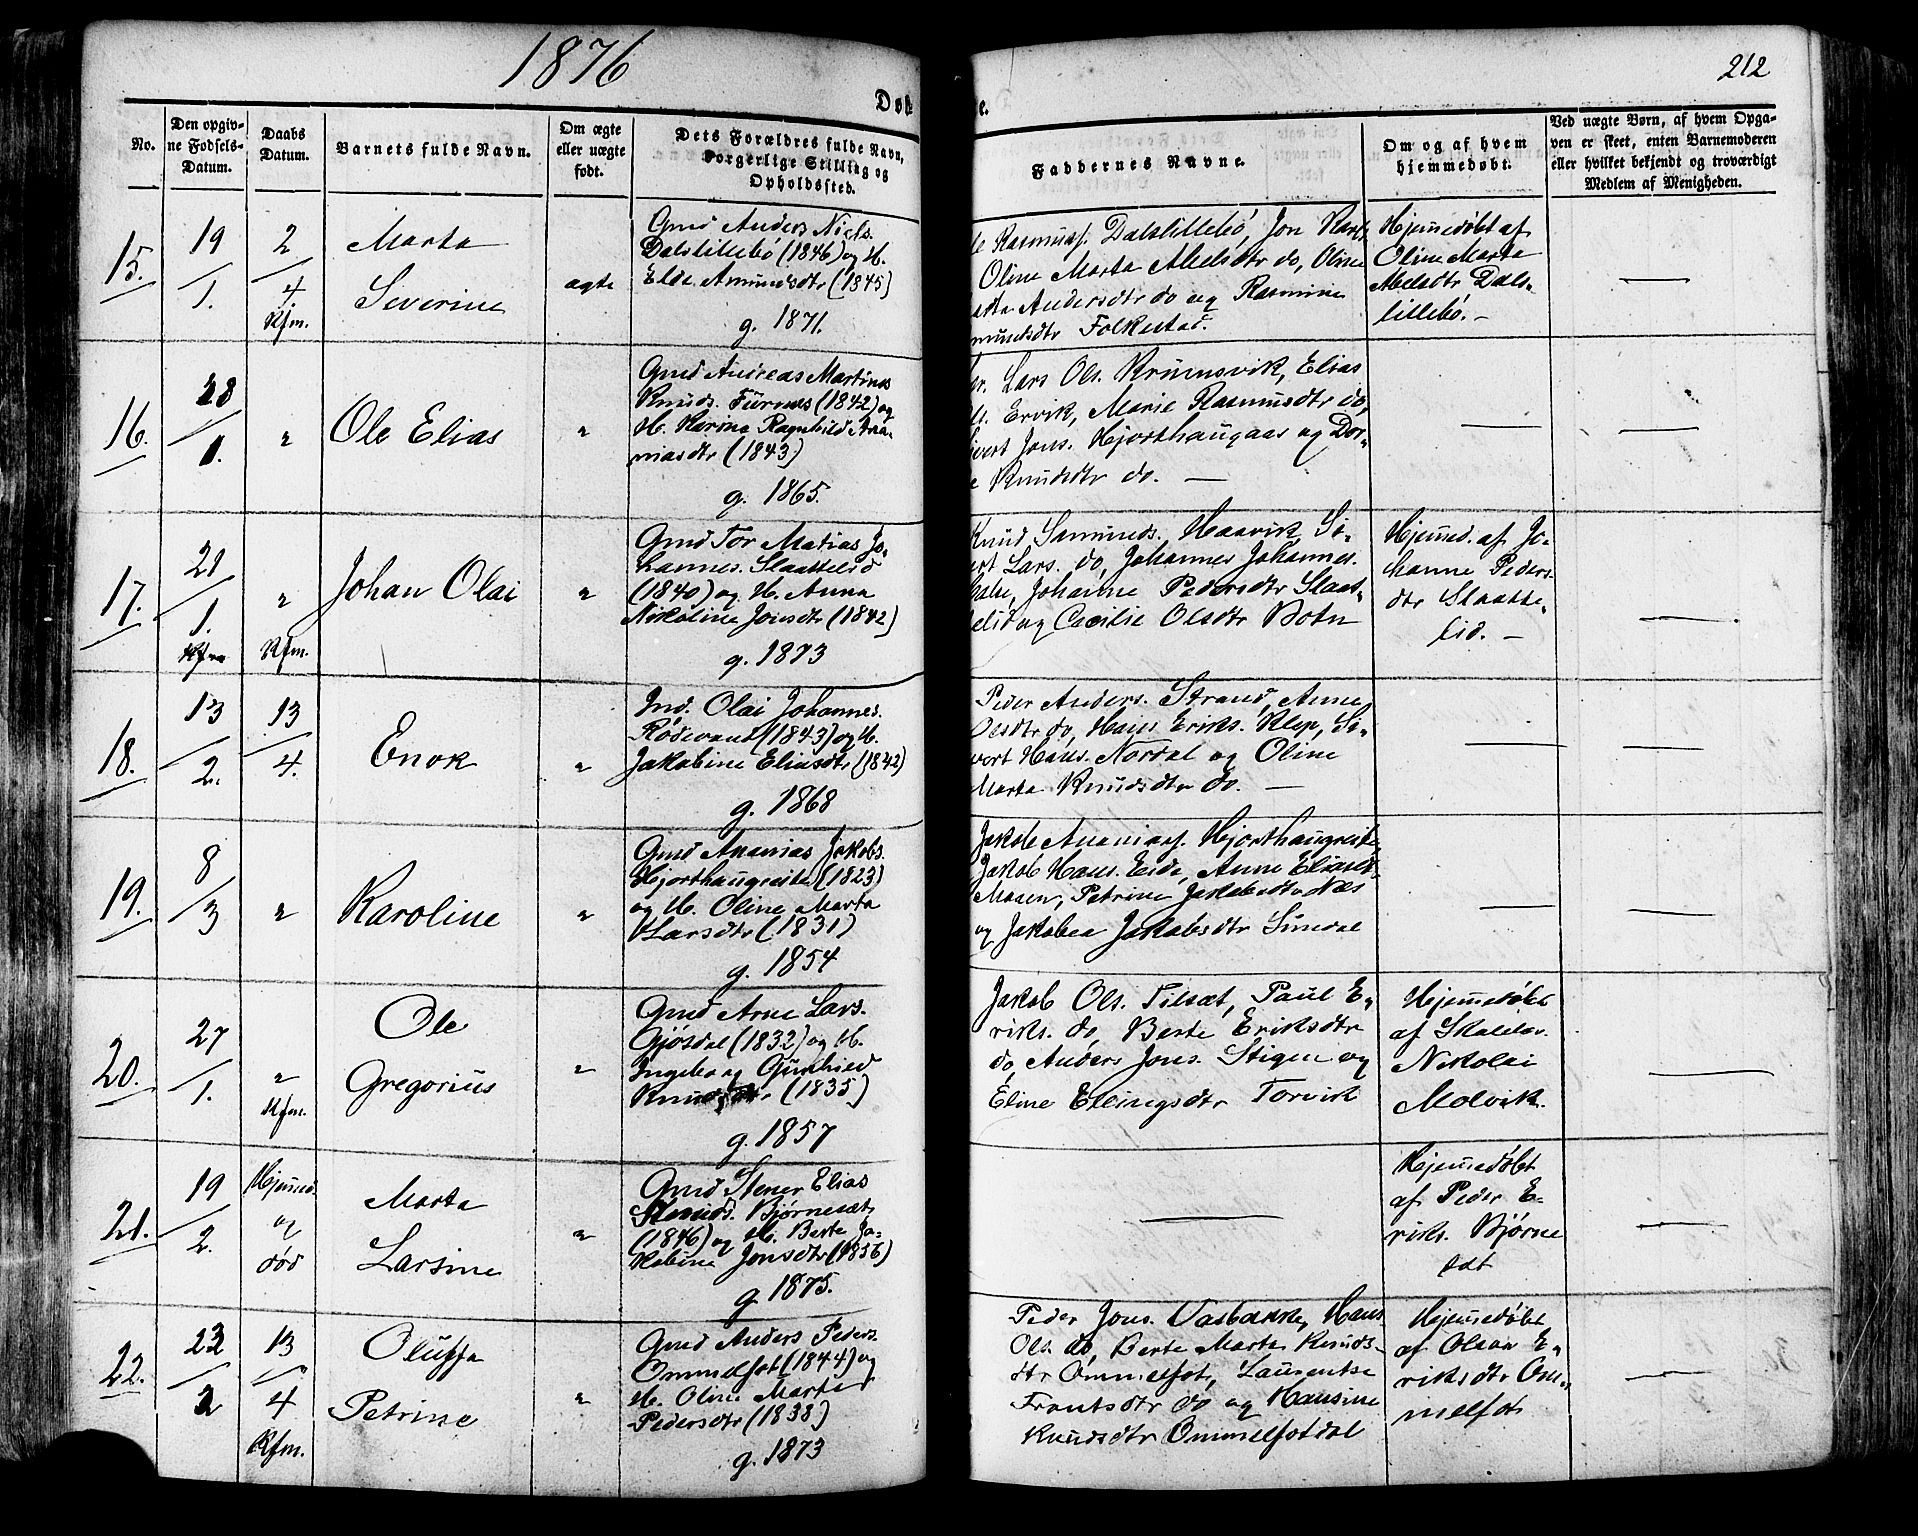 1876
212
Døb
e.
No.
Den opgiv-
ne Fødsels-
Datum.
Daabs
Datum.
Barnets fulde Navn.
Om ægte
eller uægte
født.
Dets Forældres fulde Navn,
borgerlige Stilling og
Opholdssted.
Faddernes Navne.
Om og af hvem
hjemmedøbt.
Ved uægte Børn, af hvem Opga-
ven er skeet, enten Barnemoderen
eller hvilket bekjendt og troværdigt
Medlem af Menigheden.
15.
19
1.
2
4.
Kfm.
Marta
Severine
ægte
Gmd Anders Niels.
Dalslillebø (1846) og H.
Elde Amundsdtr (1845)
g. 1871.
le Rasmuss. Dalslillebø, Jon
Oline Marta Abelsdtr do, Oline
Andersdtr do og Rasmine
mundsdtr Folkestad.
Hjemmedøbt af
Oline Marta
Abelsdtr Dals-
lillebø. -
16.
28
1.
"
Ole Elias
"
Gmd Andreas Martinus
Knuds. Furnes (1842) og
H. Karine Ragnhild Ana-
niasdtr (1843)
g. 1865.
Lars Ols. Krumsvik, Elias
Ervik, Marie Rasmusdtr do,
ivert Jons. Hjorthaugaas og Dor-
e Knudsdtr do. —
17.
21
1.
Kfm
"
Kfm.
Johan Olai
"
Gmd Tor Matias Jo-
hannes. Slaattelid
(1840) og H. Anna
Nikoline Jonsdtr (1842)
g. 1873
Knud Samunds. Haavik, Si-
vert Lars. do, Johannes Johannes.
Johanne Pedersdtr Slaat-
telid og Cecilie Olsdtr Botn
Hjemmed. af Jo-
hanne Peders-
dtr Slaatte-
lid. -
18.
13
2.
13
4.
Enok
"
Ind. Olai Johannes.
Rødevand (1843) og H.
Jakobine Eliasdtr (1842)
g. 1868
Peder Anders. Strand, Anne
Olsdtr do, Hans Eriks. Klep, Si-
vert Hans. Nordal og Oline
Marta Knudsdtr do. —
19.
8
3
"
Karoline
"
Gmd Ananias Jakobs.
Hjorthaugreite (1823)
og H. Oline Marta
Larsdtr (1831)
g. 1854
Jakob Ananiass. Hjorthaugreite,
Jakob Hans. Eide, Anne Eliasd.
Moen, Petrine Jakobsdtr Næs
og Jakobea Jakobsdtr Sundal
20.
27
1.
"
Kfm.
Ole
Gregorius
"
Gmd Arne Lars.
Gjøsdal (1832) og H.
Ingeborg Gunhild
Knudsdtr (1835)
g. 1857
Jakob Ols. Tilsæt, Paul E-
riks. do, Berte Eriksdtr
do, Anders Jons. Stigen og
Eline Ellingsdtr Torvik
Hjemmedøbt
af Skolelær.
Nikolai
Molvik.
21.
19
2.
Hjemmed.
og
død
Marta
Larsine
"
Gmd Stener Elias
Knuds. Bjørnesæt
(1846) og H. Berte Ja-
kobine Jonsdtr (1856)
g. 1875.
Hjemmedøbt
af Peder E-
riks. Bjørne
sæt
22.
23
2
13
4
Kfm.
Oluffa
Petrine
"
Gmd Anders Peders.
Ommelfot (1844) og
H. Oline Marta
Pedersdtr (1838)
g. 1873
Peder Jons. Vasbakke, Hans
Ols. do, Berte Marta Knuds-
dtr Ommelfot, Laurentse
Frantsdtr do og Hansine
Knudsdtr Ommelfotdal
Hjemmedøbt
af Olava E-
riksdtr Om-
melfot